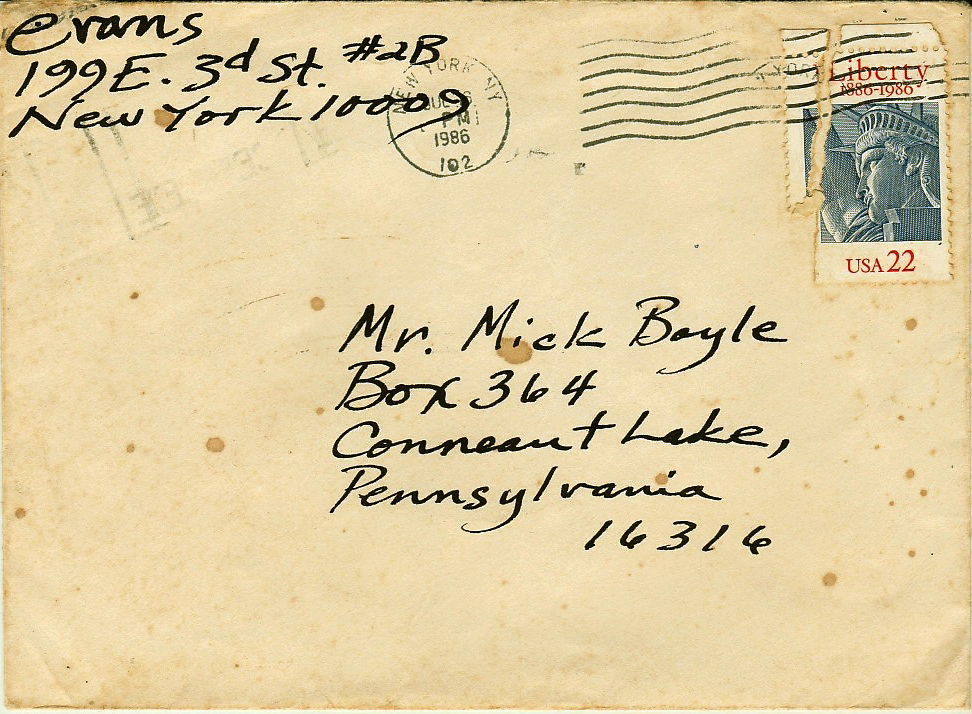 evans
199 E. 3d St. #2B
New York 10009
NEW YORK NY
PM
1986
102
YORK
Liberty
1886-1986
USA 22
Mr. Mick Boyle
Box 364
Conneaut Lake,
Pennsylvania
16316